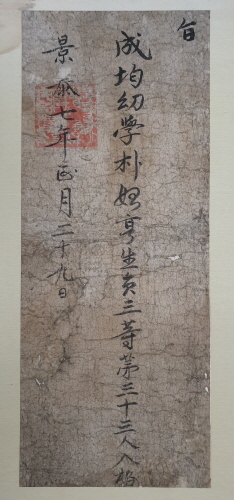 旨
成均幼學朴始亨生員三等第三十三人入格
景泰七年正月二十九日